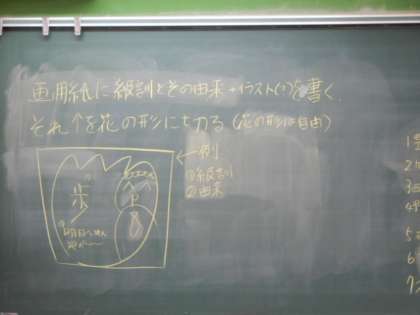 画用紙に級訓とその由来+イラスト(?)を書く、
それ↑を花の形に切る(花の形は自由)
←例
①級訓
②由来
歩
1
2
3
4
5
6
7